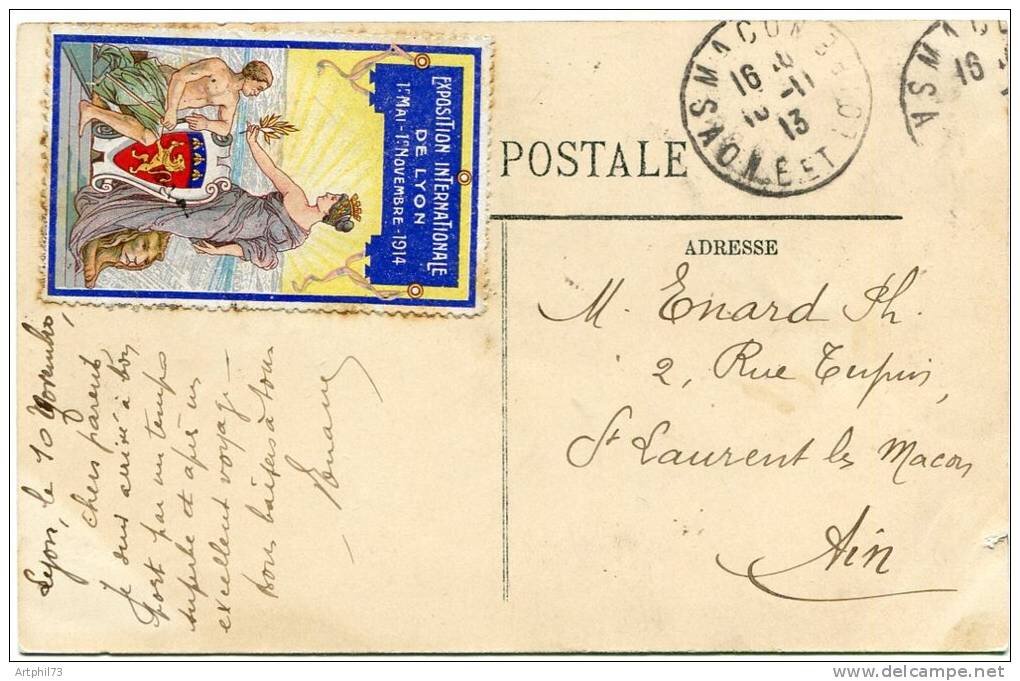 EXPOSITION INTERNATIONALE
DE LYON
1ER MAI - 1ER NOVEMBRE - 1914
POSTALE
ADRESSE
M. Enard Ph.
2, Rue Turpin
St Laurent les Macon
Ain
MACON
SAONE ET
16
11
13
MACO
16
SA
Lyon, le 10 Novembre,
chers parents
Je suis arrivé à bon
port par un temps
superbe et après un
excellent voyage —
bons baisers à tous
Artphil73
www.delcampe.net